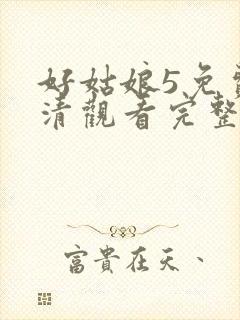 好姑娘5免
清觀看完整
富貴在天、